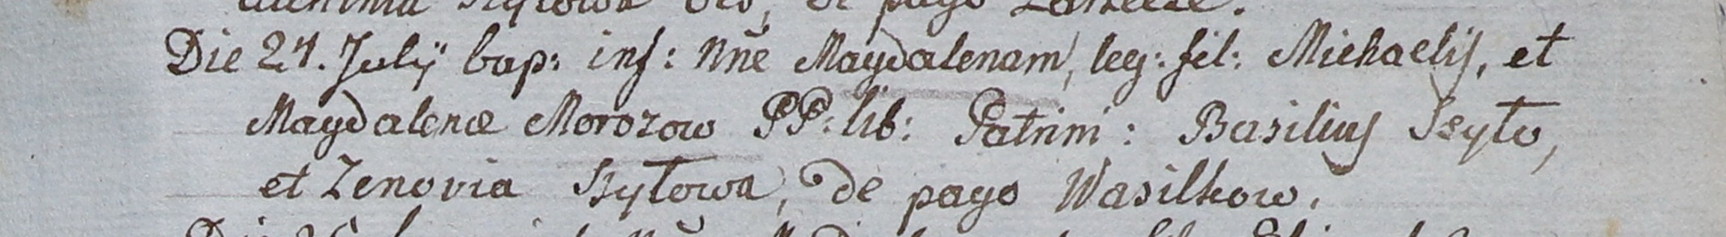 Szyłowa de pago
Die 24. Julÿ bap: inf: Nne Magdalenam, leg: fil: Michaelis, et
Magdalenæ Morozow PP: lib: Patrini: Basilius Szyło,
et Zenovia Szyłowa, de pago Wasilkow.